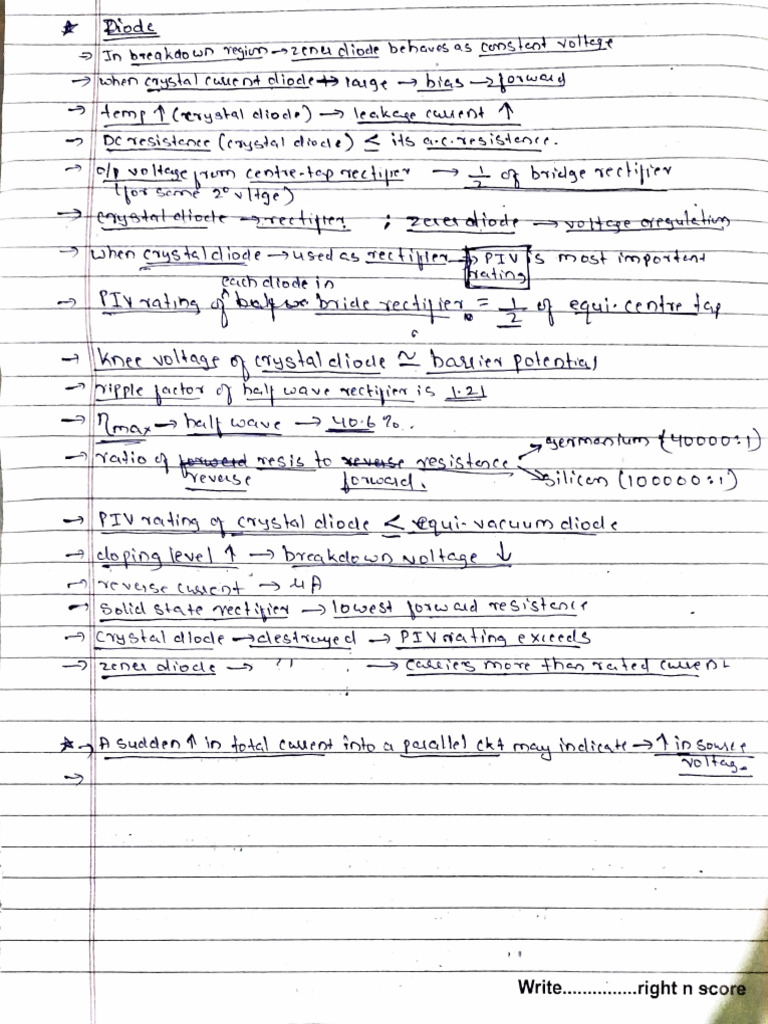 * Diode
→ In breakdown region → zener diode behaves as constant voltage
→ when crystal current diode → large → bias → forward
→ temp ↑ (crystal diode) → leakage current ↑
→ DC resistance (crystal diode) ≤ its a.c. resistence.
→ o/p voltage from centre-tap rectifier → 1/2 of bridge rectifier
(for same 2° vltge)
→ crystal diode → rectifier ; zener diode → voltage regulation
→ when crystal diode → used as rectifier → PIV is most important
rating
each diode in
→ PIV rating of half w bride rectifier = 1/2 of equi. centre tap
→ knee voltage of crystal diode ≃ barrier potential
→ ripple factor of half wave rectifier is 1.21
→ ηmax → half wave → 40.6 %.
→ germanium (40000:1)
→ ratio of forward resis to reverse resistence
→ silicon (100000:1)
reverse forward.
→ PIV rating of crystal diode < equi. vacuum diode
→ doping level ↑ → breakdown voltage ↓
→ reverse current → μA
→ solid state rectifier → lowest forward resistence
→ crystal diode → destroyed → PIV rating exceeds
→ zener diode → '' → carries more than rated current
* → A sudden ↑ in total current into a parallel ckt may indicate → ↑ in source
voltag.
→
Write...............right n score